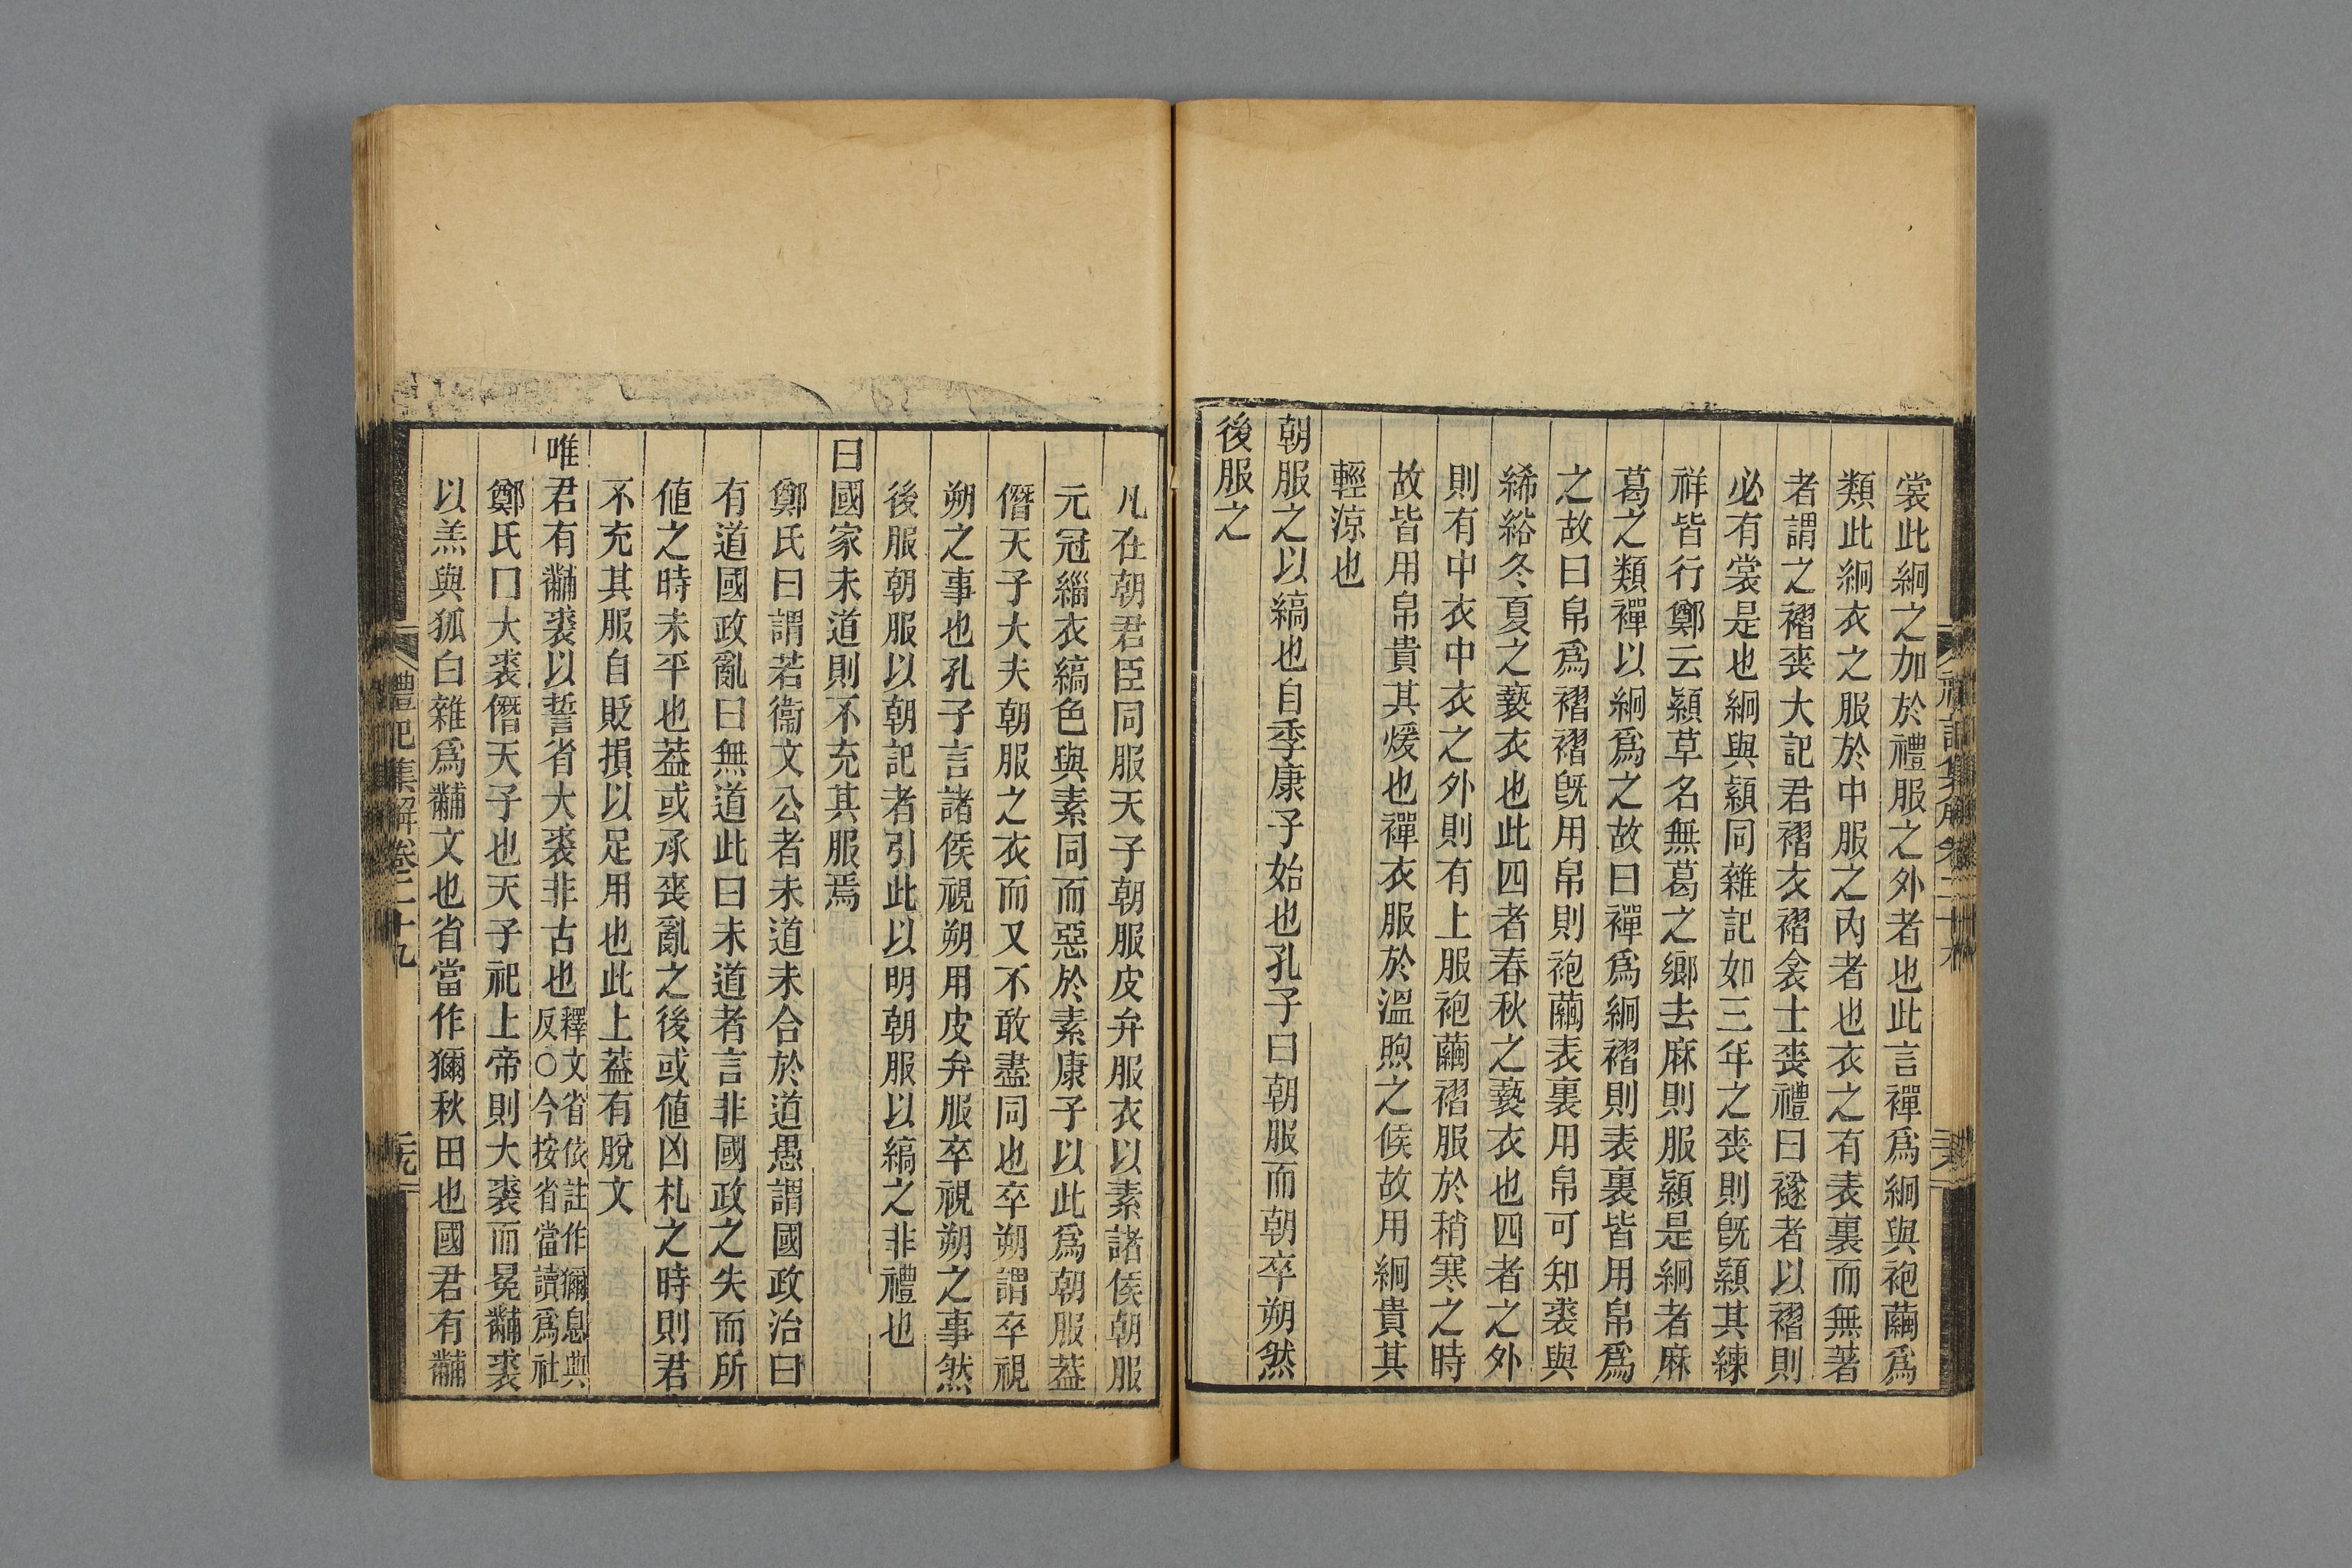 裳此絅之加於禮服之外者也此言禪爲絅與袍繭爲
類此絅衣之服於中服之內者也衣之有表裏而無著
者謂之褶喪大記君褶衣褶衾士喪禮曰襚者以褶則
必有裳是也絅與熲同雜記如三年之喪則旣熲其練
祥皆行鄭云熲草名無葛之鄉去麻則服熲是絅者麻
葛之類禪以絅爲之故曰禪爲絅褶則表裏皆用帛爲
之故曰帛爲褶褶旣用帛則袍繭表裏用帛可知裘與
絺綌冬夏之褻衣也此四者春秋之褻衣也四者之外
則有中衣中衣之外則有上服袍繭褶服於稍寒之時
故皆用帛貴其煖也禪衣服於溫煦之候故用絅貴其
輕涼也
朝服之以縞也自季康子始也孔子曰朝服而朝卒朔然
後服之
凡在朝君臣同服天子朝服皮弁服衣以素諸侯朝服
元冠緇衣縞色與素同而惡於素康子以此爲朝服葢
僭天子大夫朝服之衣而又不敢盡同也卒朔謂卒視
朔之事也孔子言諸侯視朔用皮弁服卒視朔之事然
後服朝服以朝記者引此以明朝服以縞之非禮也
曰國家未道則不充其服焉
鄭氏曰謂若衞文公者未道未合於道愚謂國政治曰
有道國政亂曰無道此曰未道者言非國政之失而所
値之時未平也葢或承喪亂之後或値凶札之時則君
不充其服自貶損以足用也此上葢有脫文
唯君有黼裘以誓省大裘非古也釋文省依註作獮息典
反○今按省當讀爲社
鄭氏曰大裘僭天子也天子祀上帝則大裘而冕黼裘
以羔與狐白雜爲黼文也省當作獮秋田也國君有黼
禮記集解卷二十九